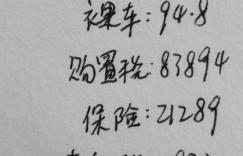 裸车:94.8
购置税:83894
保险:21289